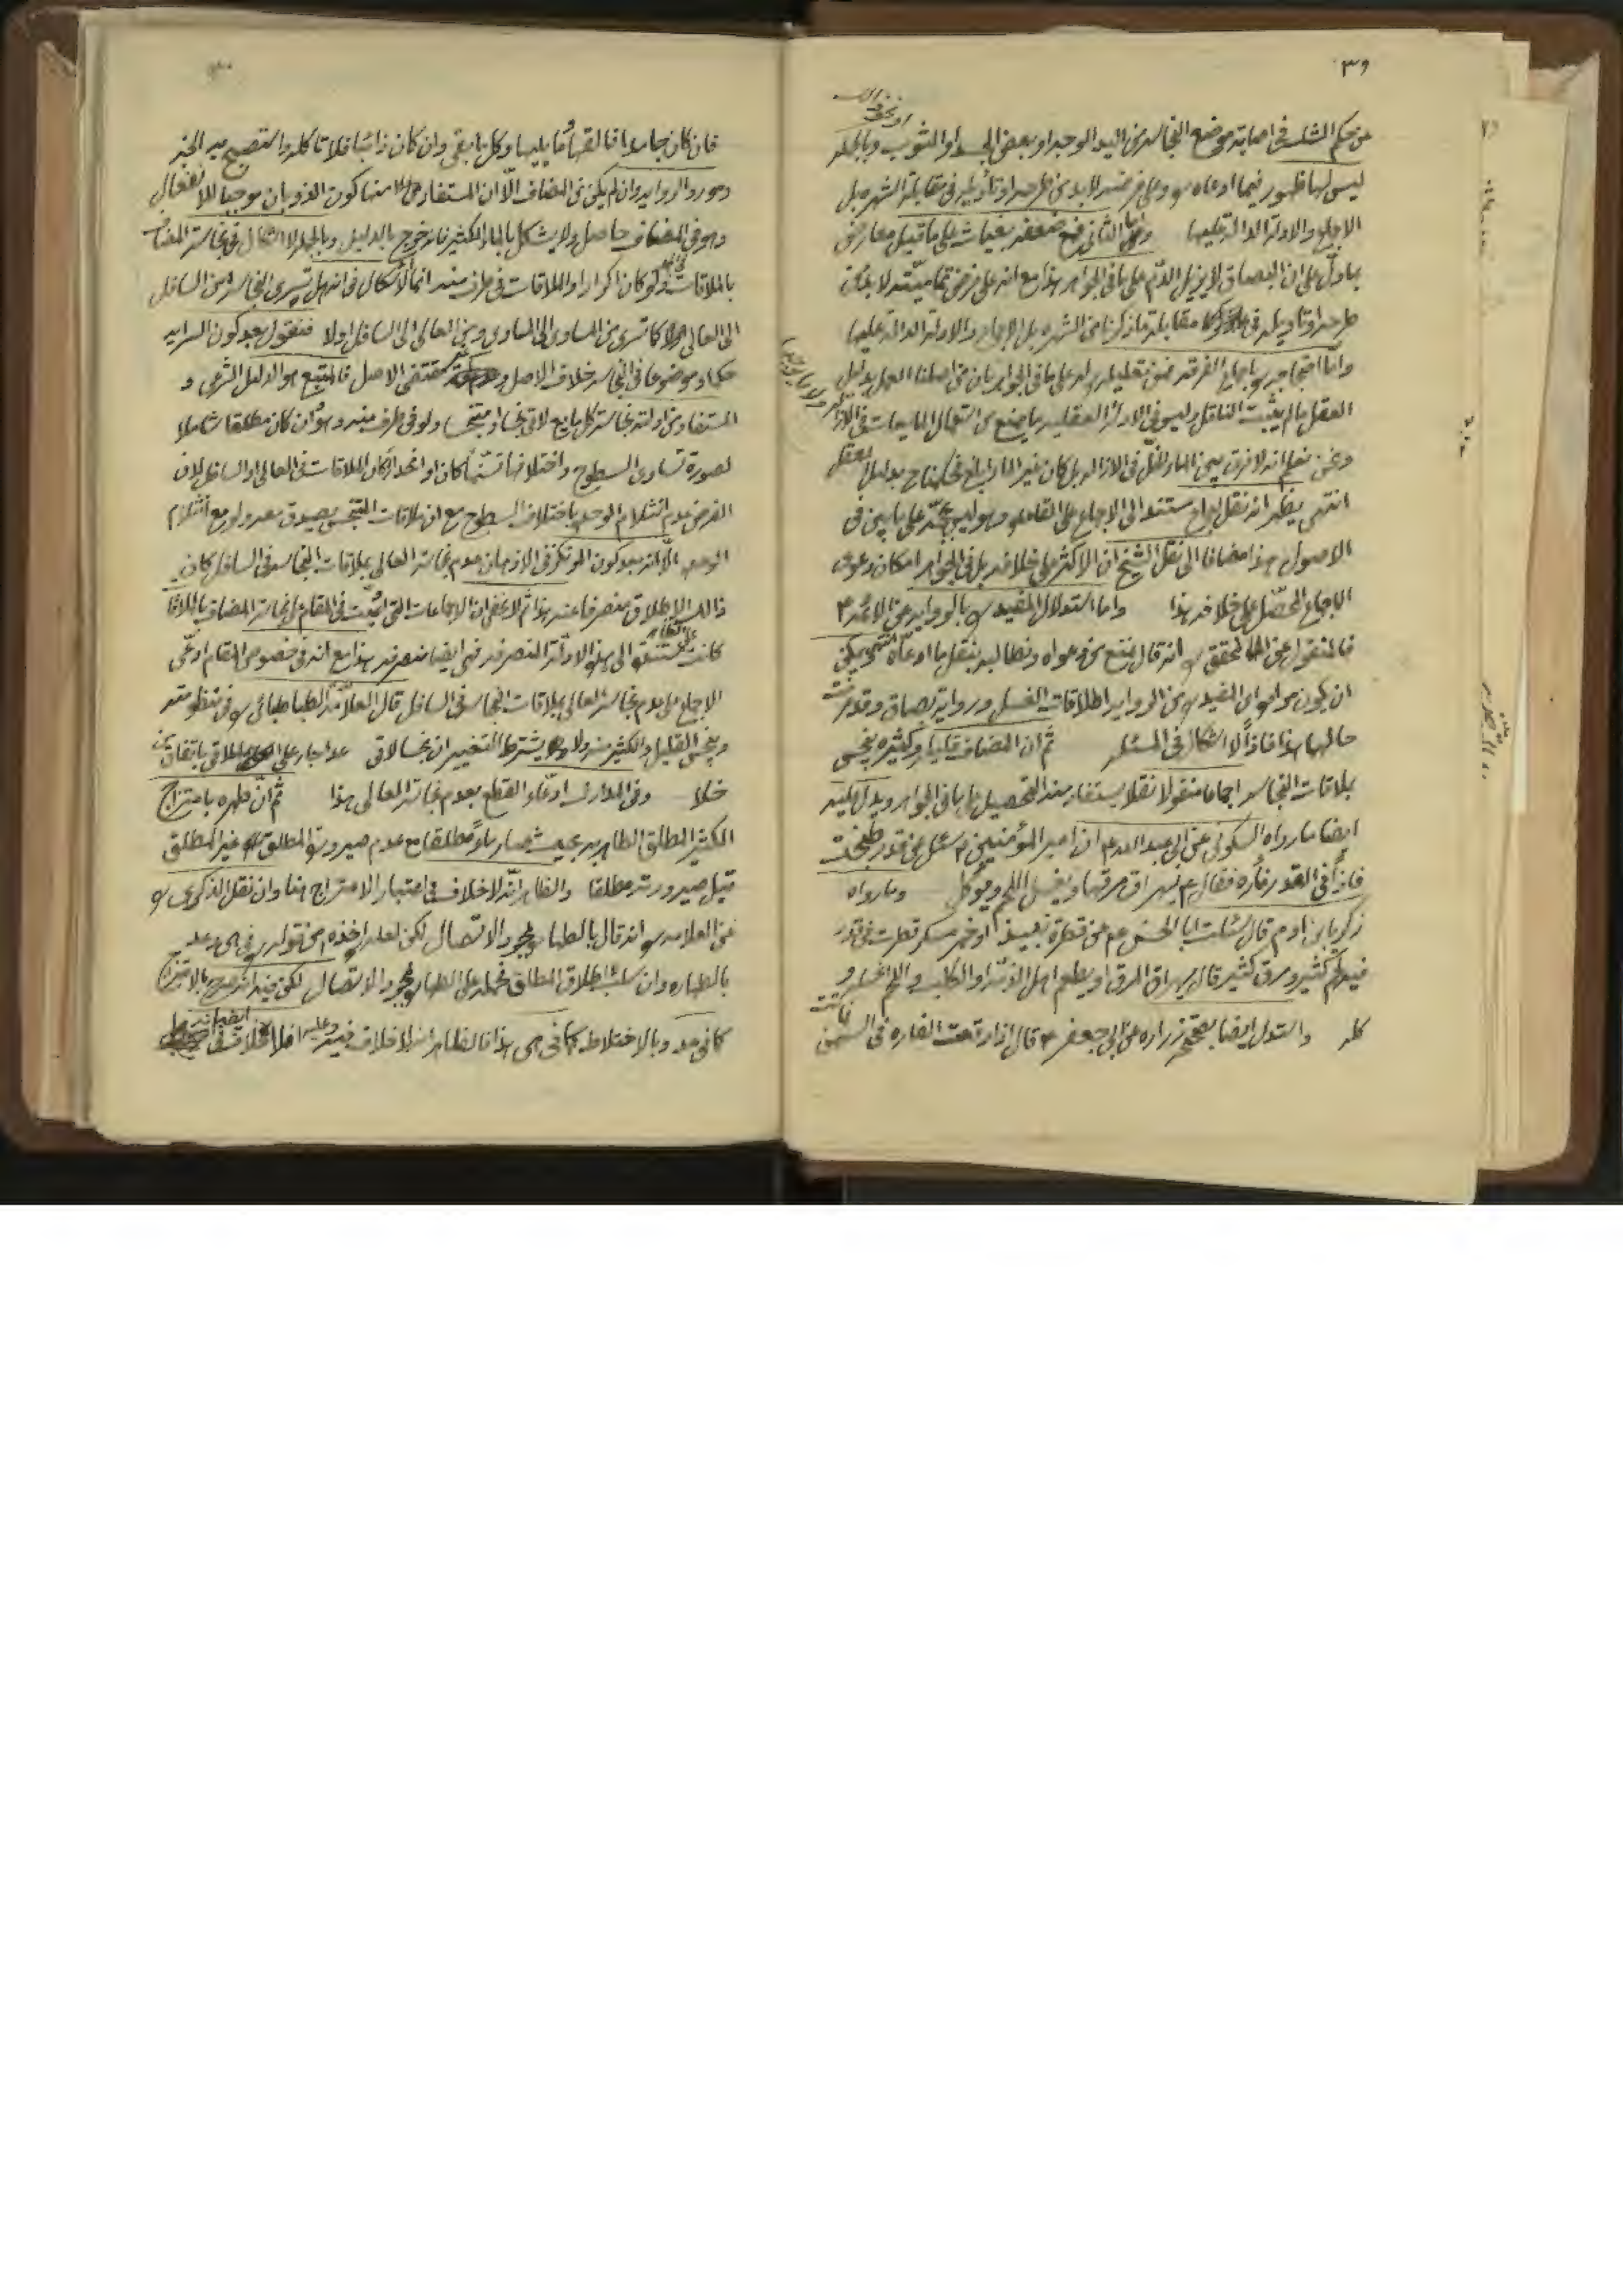 ٣٩
من حكم الشك في اصابة موضع النجاسه من اليد الوجه او بعض الجسد او الثوب وبالجمله
ليس لها ظهور فيما ادعاه وعلى فرضه لابد من طرحه او تأويله في مقابلة الشهره بل
الاجماع والادلة الدالة عليها واما الثاني فمع ضعفه بغياث على ما قيل معارض
بما دلّ على ان البصاق لا يزيل الدم على ما في الجواهر هذا مع انه على فرض تماميته لا بد من
طرحه او تاويله في مقابلة ما ذكرنا من الشهره بل الاجماع والادلة الدالة عليها
واما احتجاجه باجماع الفرقه فمن تعليله له على ما في الجواهر بان من اصلنا العمل بدليل
العقل ما لم يثبت الناقل وليس في الادلة العقليه ما يمنع من استعمال المايعات في الازالة ولا ما يوجبها
ونحن نعلم انه لا فرق بين الماء والخل في الازاله بل كان غير الماء ابلغ فحكمنا ح بدليل العقل
انتهى يظهر انه نقل اجماع مستندا الى الاجماع على القاعده وهو ليس بحجّة على ما بيّن في
الاصول هذا مضافا الى نقل الشيخ ان الاكثر على خلافه بل في الجواهر امكان دعوى
الاجماع المحصّل على خلافه هذا واما استدلال المفيد بالروايه عن الائمه ع
فالمنقول عن المحقق انه قال نمنع من دعواه ونطالبه بنقل ما ادعاه انتهى ويمكن
ان يكون مراد المفيد من الروايه اطلاقات الغسل ورواية بصاق وقد عرفت
حالها هذا فاذاً لا اشكال في المسئله ثم ان المضاف قليله وكثيره ينجس
بملاقات النجاسه اجماعا منقولا نقلا يستفاد منه التحصيل ما في الجواهر ويدل عليه
ايضا ما رواه السكوني عن ابي عبد الله ع ان امير المؤمنين ع سئل عن قدر طبخت
فاذاً في القدر فأره فقال ع يهراق مرقها ويغسل اللحم ويؤكل وما رواه
زكريا بن ادم قال سئلت ابا الحسن ع عن قطرة نبيذ او خمر مسكر قطرت في قدر
فيه لحم كثير ومرق كثير قال يهراق المرق او يطعم اهل الذمّة او الكلب واللحم اغسله و
كله واستدل ايضا بصحيح زراره عن ابي جعفر ع قال اذا وقعت الفاره في السمن فماتت
فان كان جامدا فالقها وما يليها وكل ما بقى وان كان ذائبا فلا تاكله واستصبح به الخبر
ومورد الروايه وان لم يكن من المضاف الّا ان المستفاد منها كون الذوبان موجبا للانفعال
وهو في المضاف حاصل ولا يشكل بالماء الكثير فانه خرج بالدليل وبالجمله لا اشكال في نجاسة المضاف
بالملاقات ولو كان اكرارا والملاقات في طرف منه انما الاشكال في انه هل تسرى النجاسه من السافل
الى العالى كما تسرى من المساوى الى المساوى ومن العالى الى السافل او لا فنقول بعد كون السرايه
حكما وموضوعا في النجاسه خلاف الاصل و مقتضى الاصل فالمتبع هو الدليل الشرعى و
المستفاد من ادلة نجاسة كل مايع لاقى نجسا او متنجسا ولو في طرف منه وهو ان كان مطلقا شاملا
لصورة تساوى السطوح واختلافها تسنّما كان او انحدارا كان الملاقات في العالى او السافل لان
الفرض عدم انثلام الوحده باختلاف السطوح مع ان ملاقات المتنجس يصدق معه ولو مع انثلام
الوحده الّا انه بعد كون المرتكز في الاذهان عدم نجاسة العالى بملاقات النجاسه في السافل كان
ذالك الاطلاق منصرفا عنه هذا ثم لا يخفى ان الاجماعات التي اثبتت في المقام نجاسة المضاف بالملاقات
كانت مستندة الى هذه الادلة المنصرفه فهي ايضا منصرفه هذا مع انه في خصوص المقام ادعّى
الاجماع على عدم نجاسة العالى بملاقات النجاسه في السافل قال العلاّمة الطباطبائي في منظومته
وينجس القليل والكثير منه ولا يشترط التغيير ان نجسا لاقى عدا جار على الملاقى باتفاق من
خلا وفي المدارك ادعّاء القطع بعدم نجاسة العالى هذا ثم انّ طهره بامتزاج
الكثير المطلق الطاهر به بحيث صار ماءً مطلقا مع عدم صيرورة المطلق غير المطلق
قبل صيرورته مطلقا والظاهر انّه لا خلاف في اعتبار الامتزاج هنا وان نقل الذكرى
عن العلامه انه قال بالطهاره بمجرد الاتصال لكن لعله اخذه من قوله في هى وعد
بالطهاره وان سلب اطلاق المطلق فحمله على الطهاره بمجرد الاتصال لكن فيه انه صرح بالامتزاج
كما في عد وبالاختلاط كما في هى هذا فالظاهر انه لا خلاف فيه وعليه فلا خلاف في